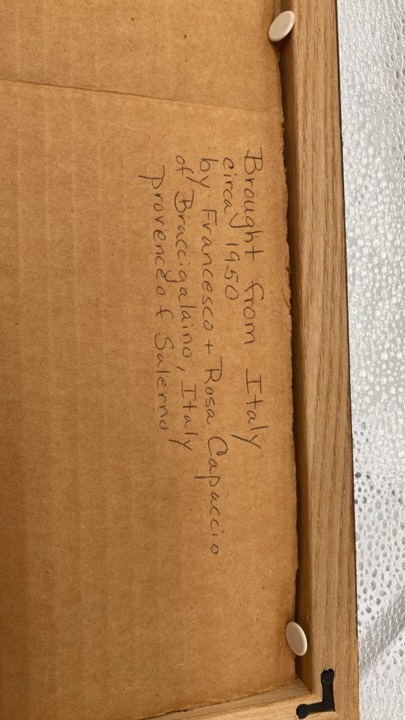 Brought from Italy
circa 1950
by Francesco + Rosa Capaccio
of Braccigalaino, Italy
provence of Salerno